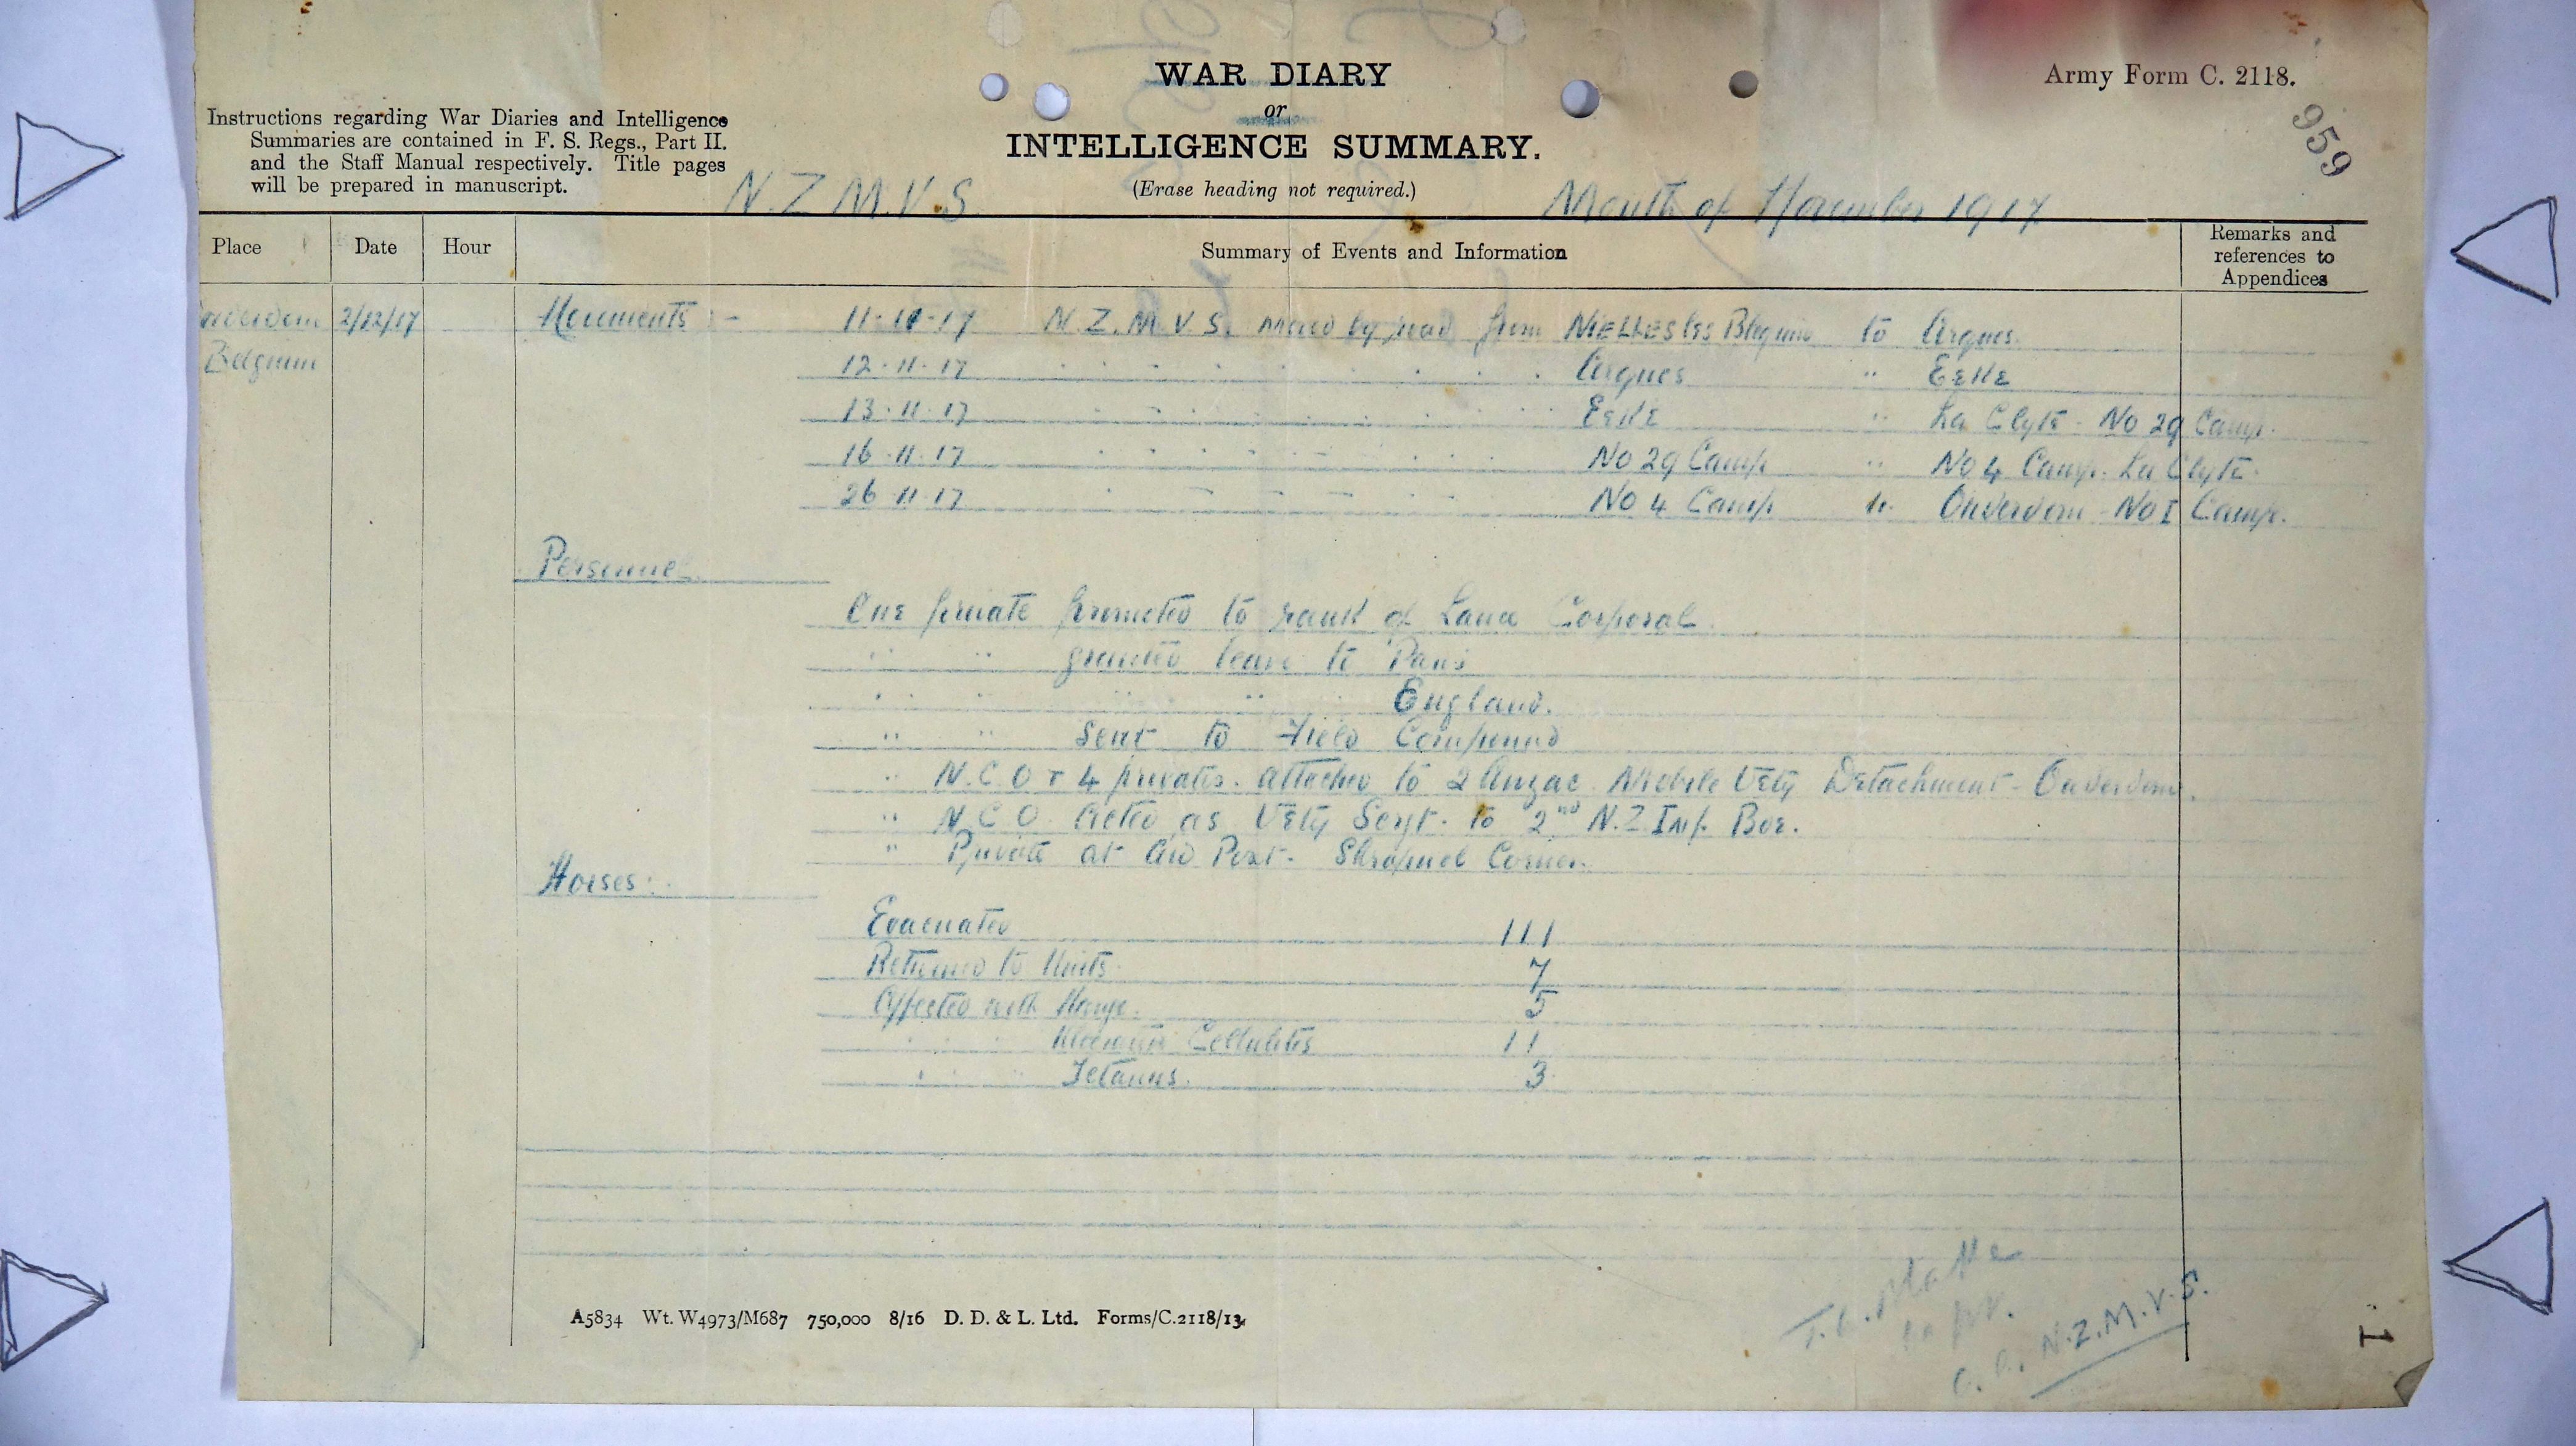 WAR DIARY
or
INTELLIGENCE SUMMARY.
(Erase heading not required.)
Army Form C. 2118.
959
Instructions regarding War Diaries and Intelligence
Summaries are contained in F. S. Regs., Part II.
and the Staff Manual respectively. Title pages
will be prepared in manuscript.
N.Z M.V.S.
Month of November 1917
Place Date Hour Summary of Events and Information Remarks and references to Appendices
2/12/17 Movements :- 11-11-17 N.Z.M.V.S. moved by road from NIELLES les Blequin to Arques.
Belgium 12.11.17 Arques " EEKE
13.11.17 EEKE " La Clyte - No 29 Camp.
16.11.17 No 29 Camp " No 4 Camp. La Clyte.
26.11.17 No 4 Camp to Ouderdom - No I Camp.
Personnel
One private promoted to rank of Lance Corporal.
" " granted leave to Paris
" " " " England.
" " Sent to Field Compound
" N.C.O + 4 privates. attached to 2 Anzac Mobile Vety Detachment - Ouderdom.
" N.C.O. Acted as Vety Sergt. to 2nd N.Z Inf. Bde.
" Private at Aid Post. Shrapnel Corner.
Horses:
Evacuated 111
Returned to Units. 7
Affected with Mange. 5
" " Cellulitis 11
" " Tetanus. 3
A5834 Wt. W4973/M687 750,000 8/16 D. D. & L. Ltd. Forms/C.2118/13.
N.Z.M.V.S.
1